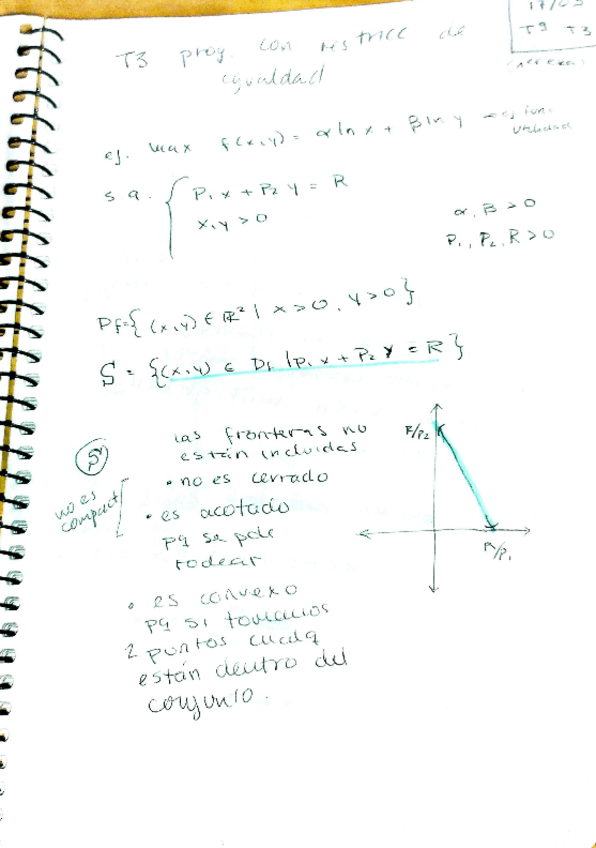 17/03
T9 T3
T3 prog. con restricc de
igualdad
ej. max f(x,y) = α ln x + β ln y → ej fun.
utilidad
s a. { P₁ x + P₂ y = R
x, y > 0
α, β > 0
P₁, P₂, R > 0
Df = {(x,y) ∈ ℝ² | x > 0, y > 0}
S = {(x,y) ∈ Df | P₁ x + P₂ y = R}
S
las fronteras no
están incluidas
• no es cerrado
no es
compact
• es acotado
pq se pde
rodear
• es convexo
pq si tomamos
2 puntos cualq
están dentro del
conjunto.
R/P₂
R/P₁